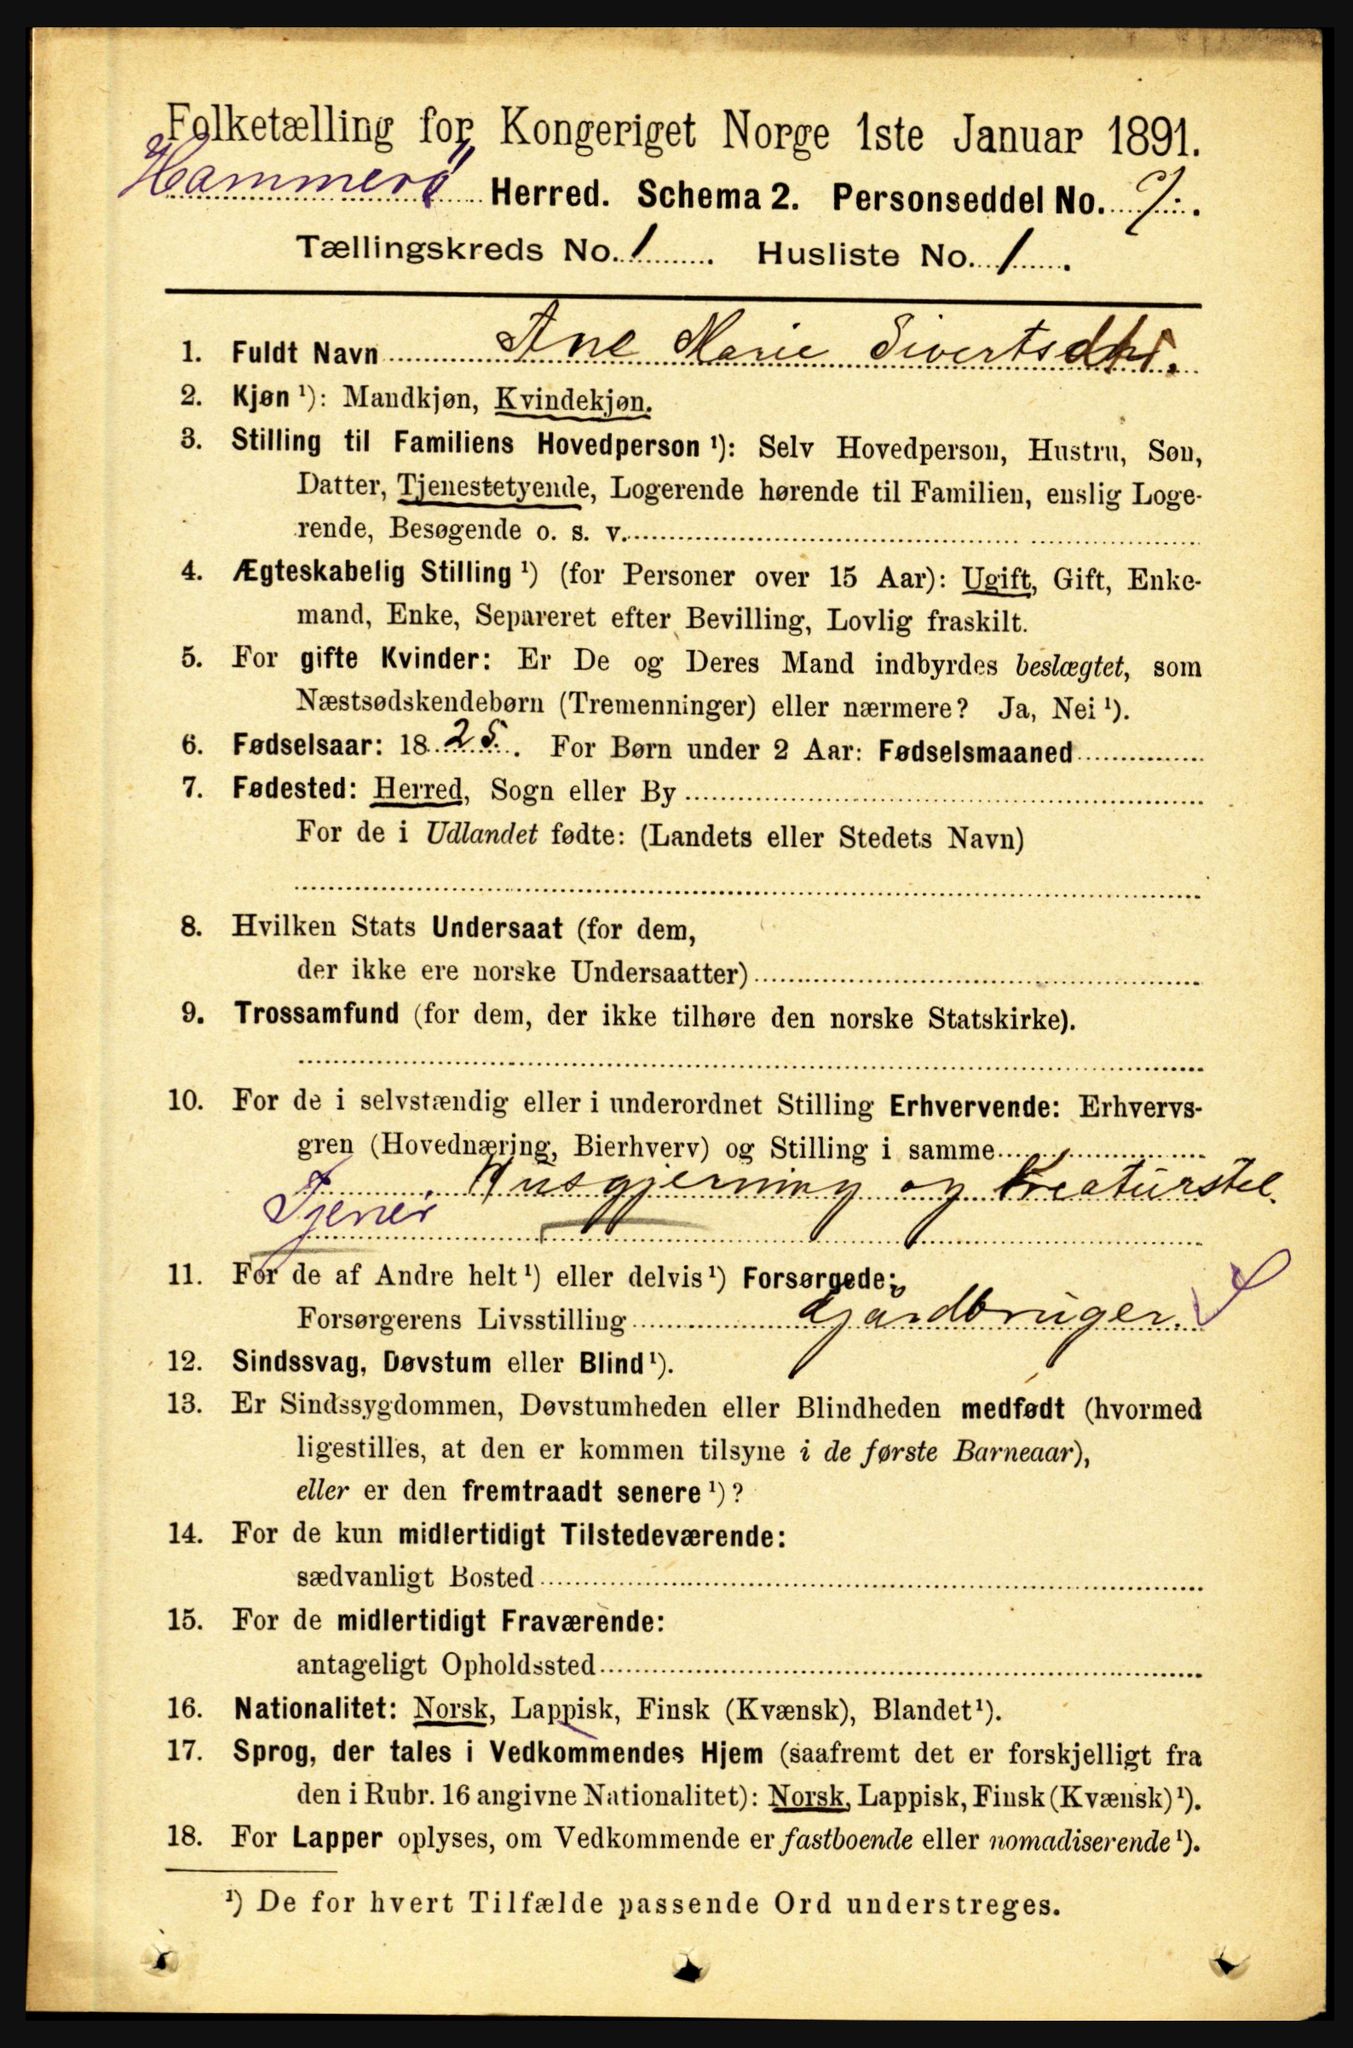 Folketælling for Kongeriget Norge 1ste Januar 1891.
Hammerö Herred. Schema 2. Personseddel No. 7.
Tællingskreds No. 1. Husliste No. 1.
1. Fuldt Navn Ane Marie Sivertsdtr.
2. Kjøn ¹): Mandkjøn, Kvindekjøn.
3. Stilling til Familiens Hovedperson ¹): Selv Hovedperson, Hustru, Søn,
Datter, Tjenestetyende, Logerende hørende til Familien, enslig Loge-
rende, Besøgende o. s. v.
4. Ægteskabelig Stilling ¹) (for Personer over 15 Aar): Ugift, Gift, Enke-
mand, Enke, Separeret efter Bevilling, Lovlig fraskilt.
5. For gifte Kvinder: Er De og Deres Mand indbyrdes beslægtet, som
Næstsødskendebørn (Tremenninger) eller nærmere? Ja, Nei ¹).
6. Fødselsaar: 1825. For Børn under 2 Aar: Fødselsmaaned
7. Fødested: Herred, Sogn eller By
For de i Udlandet fødte: (Landets eller Stedets Navn)
8. Hvilken Stats Undersaat (for dem,
der ikke ere norske Undersaatter)
9. Trossamfund (for dem, der ikke tilhøre den norske Statskirke).
10. For de i selvstændig eller i underordnet Stilling Erhvervende: Erhvervs-
gren (Hovednæring, Bierhverv) og Stilling i samme
Husgjerning og Kreaturstel.
Tjener
11. For de af Andre helt ¹) eller delvis ¹) Forsørgede:
Forsørgerens Livsstilling Gårdbruger.
12. Sindssvag, Døvstum eller Blind ¹).
13. Er Sindssygdommen, Døvstumheden eller Blindheden medfødt (hvormed
ligestilles, at den er kommen tilsyne i de første Barneaar),
eller er den fremtraadt senere ¹)?
14. For de kun midlertidigt Tilstedeværende:
sædvanligt Bosted
15. For de midlertidigt Fraværende:
antageligt Opholdssted
16. Nationalitet: Norsk, Lappisk, Finsk (Kvænsk), Blandet ¹).
17. Sprog, der tales i Vedkommendes Hjem (saafremt det er forskjelligt fra
den i Rubr. 16 angivne Nationalitet): Norsk, Lappisk, Finsk (Kvænsk) ¹).
18. For Lapper oplyses, om Vedkommende er fastboende eller nomadiserende ¹).
¹) De for hvert Tilfælde passende Ord understreges.